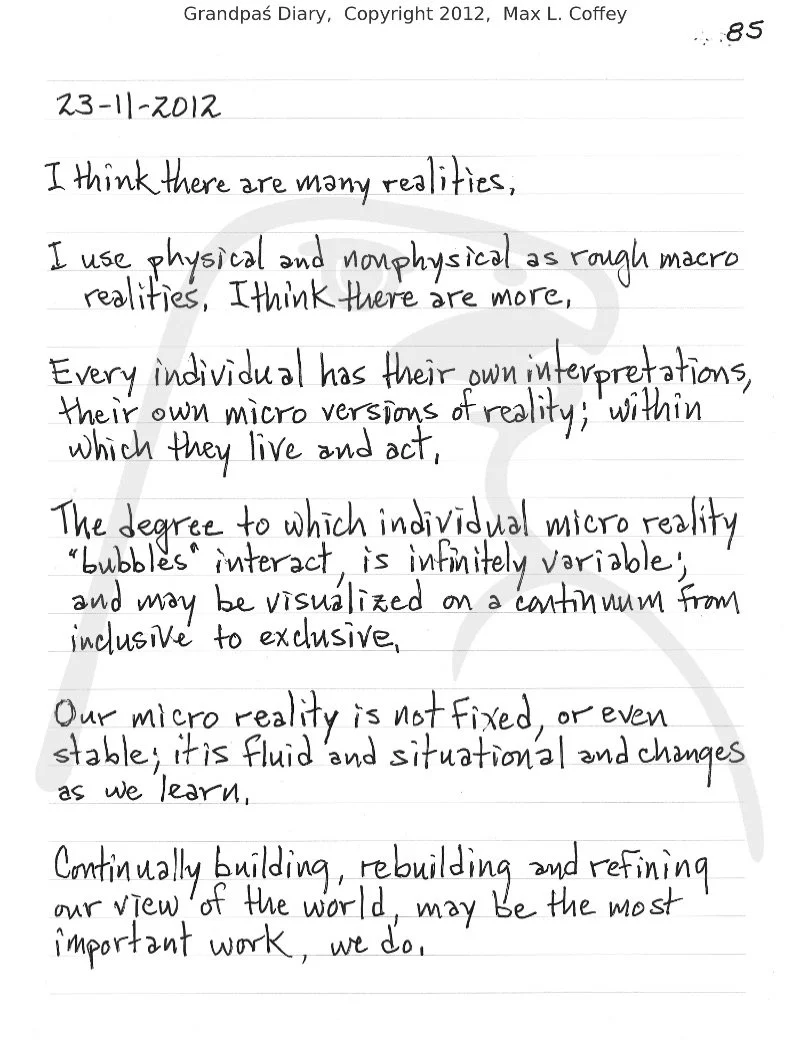 Grandpaś Diary, Copyright 2012, Max L. Coffey
85
23-11-2012
I think there are many realities.
I use physical and nonphysical as rough macro
realities. I think there are more.
Every individual has their own interpretations,
their own micro versions of reality; within
which they live and act.
The degree to which individual micro reality
"bubbles" interact, is infinitely variable;
and may be visualized on a continuum from
inclusive to exclusive.
Our micro reality is not fixed, or even
stable; it is fluid and situational and changes
as we learn.
Continually building, rebuilding and refining
our view of the world, may be the most
important work, we do.